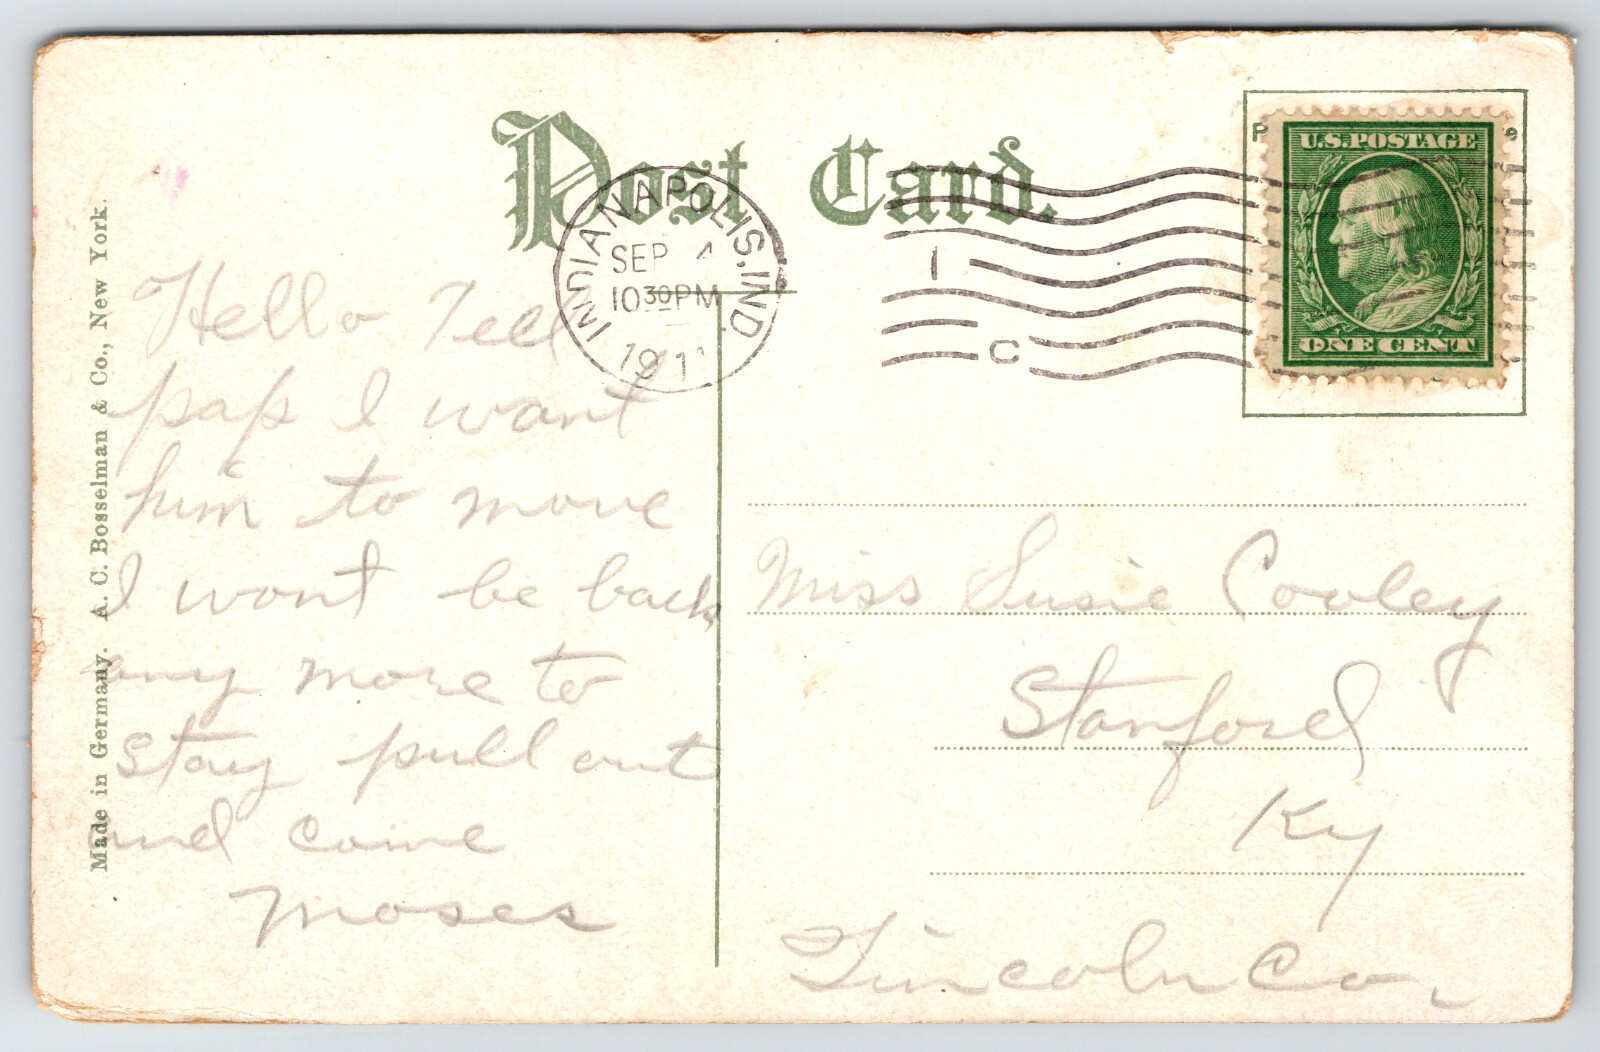 Post Card.
INDIANAPOLIS, IND
SEP 4
10 30 PM
1911
1
C
U.S. POSTAGE
ONE CENT
Made in Germany. A. C. Bosselman & Co., New York.
Hello Tell
pap I want
him to move
I wont be back
any more to
stay pull out
and come
Moses
Miss Susie Cooley
Stanford
Ky
Lincoln Co.